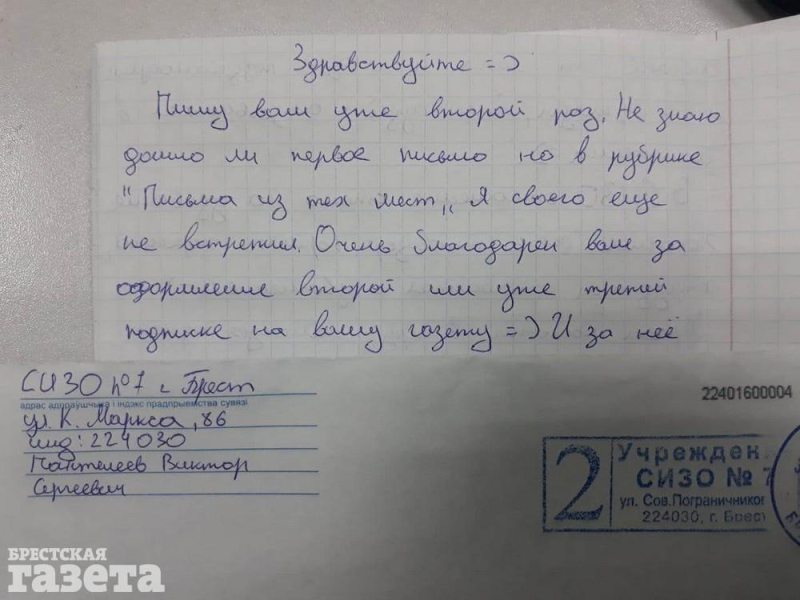 Здравствуйте =)
Пишу вам уже второй раз. Не знаю
дошло ли первое письмо но в рубрике
"Письма из тех мест,, я своего еще
не встретил. Очень благодарен вам за
оформление второй или уже третей
подписке на вашу газету =) И за неё
СИЗО №7 г. Брест
адрас адпраўшчыка і індэкс прадпрыемства сувязі
ул. К. Маркса, 86
инд: 224030
Пантелеев Виктор
Сергеевич
22401600004
2
Учрежден
СИЗО № 7
ул. Сов.Пограничников
224030, г. Брест
БРЕСТСКАЯ
газета